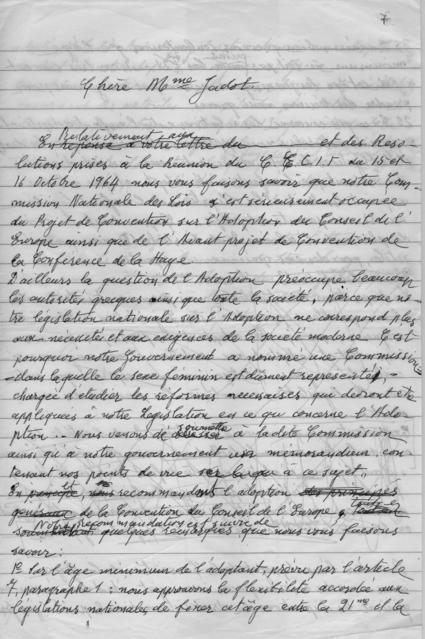 7
Chère Mme Jadot.
Relativement aux
En réponse à votre lettre du et des Reso-
lutions prises à la Réunion du C.E.C.I.F du 15 et
16 Octobre 1964 nous vous faisons savoir que notre Com-
mission Nationale des Lois s'est sérieusement occupée
du Projet de Convention sur l'Adoption du Conseil de l'
Europe ainsi que de l'Avant projet de Convention de
la Conférence de la Haye
D'ailleurs la question de l'Adoption préoccupe beaucoup
les autorités grecques ainsi que toute la société, parce que no-
tre législation nationale sur l'Adoption ne correspond plus
aux nécécités et aux exigences de la société moderne C'est
pourquoi notre Gouvernement a nommé une Commission
- dans laquelle le sexe feminin est dûment représenté, -
chargée d'étudier les réformes nécessaires qui devront être
appliquées à notre Législation en ce qui concerne l'Ado-
ption .. Nous venons de soumettre à la dite Commission
ainsi qu'à notre gouvernement un memorandum, con-
tenant nos points de vue sur à ce sujet,
En principe et nous recommandant l'adoption des principes
generaux de la Convention du Conseil de l'Europe,
Notre recommandation est suivie de
quelques remarques que nous vous faisons
savoir:
1º Sur l'âge minimum de l'adoptant, prévu par l'article
7, paragraphe 1: nous approuvons la flexibilité accordée aux
législations nationales de fixer cet âge entre la 21me et la